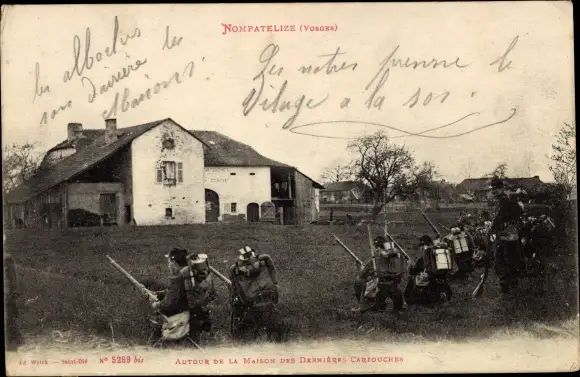 NOMPATELIZE (VOSGES)
les alboches
son darière les
Maisons.
Les notres prenne le
Village a la son.
Ad. Weick — Saint-Dié Nº 5289 bis AUTOUR DE LA MAISON DES DERNIÈRES CARTOUCHES